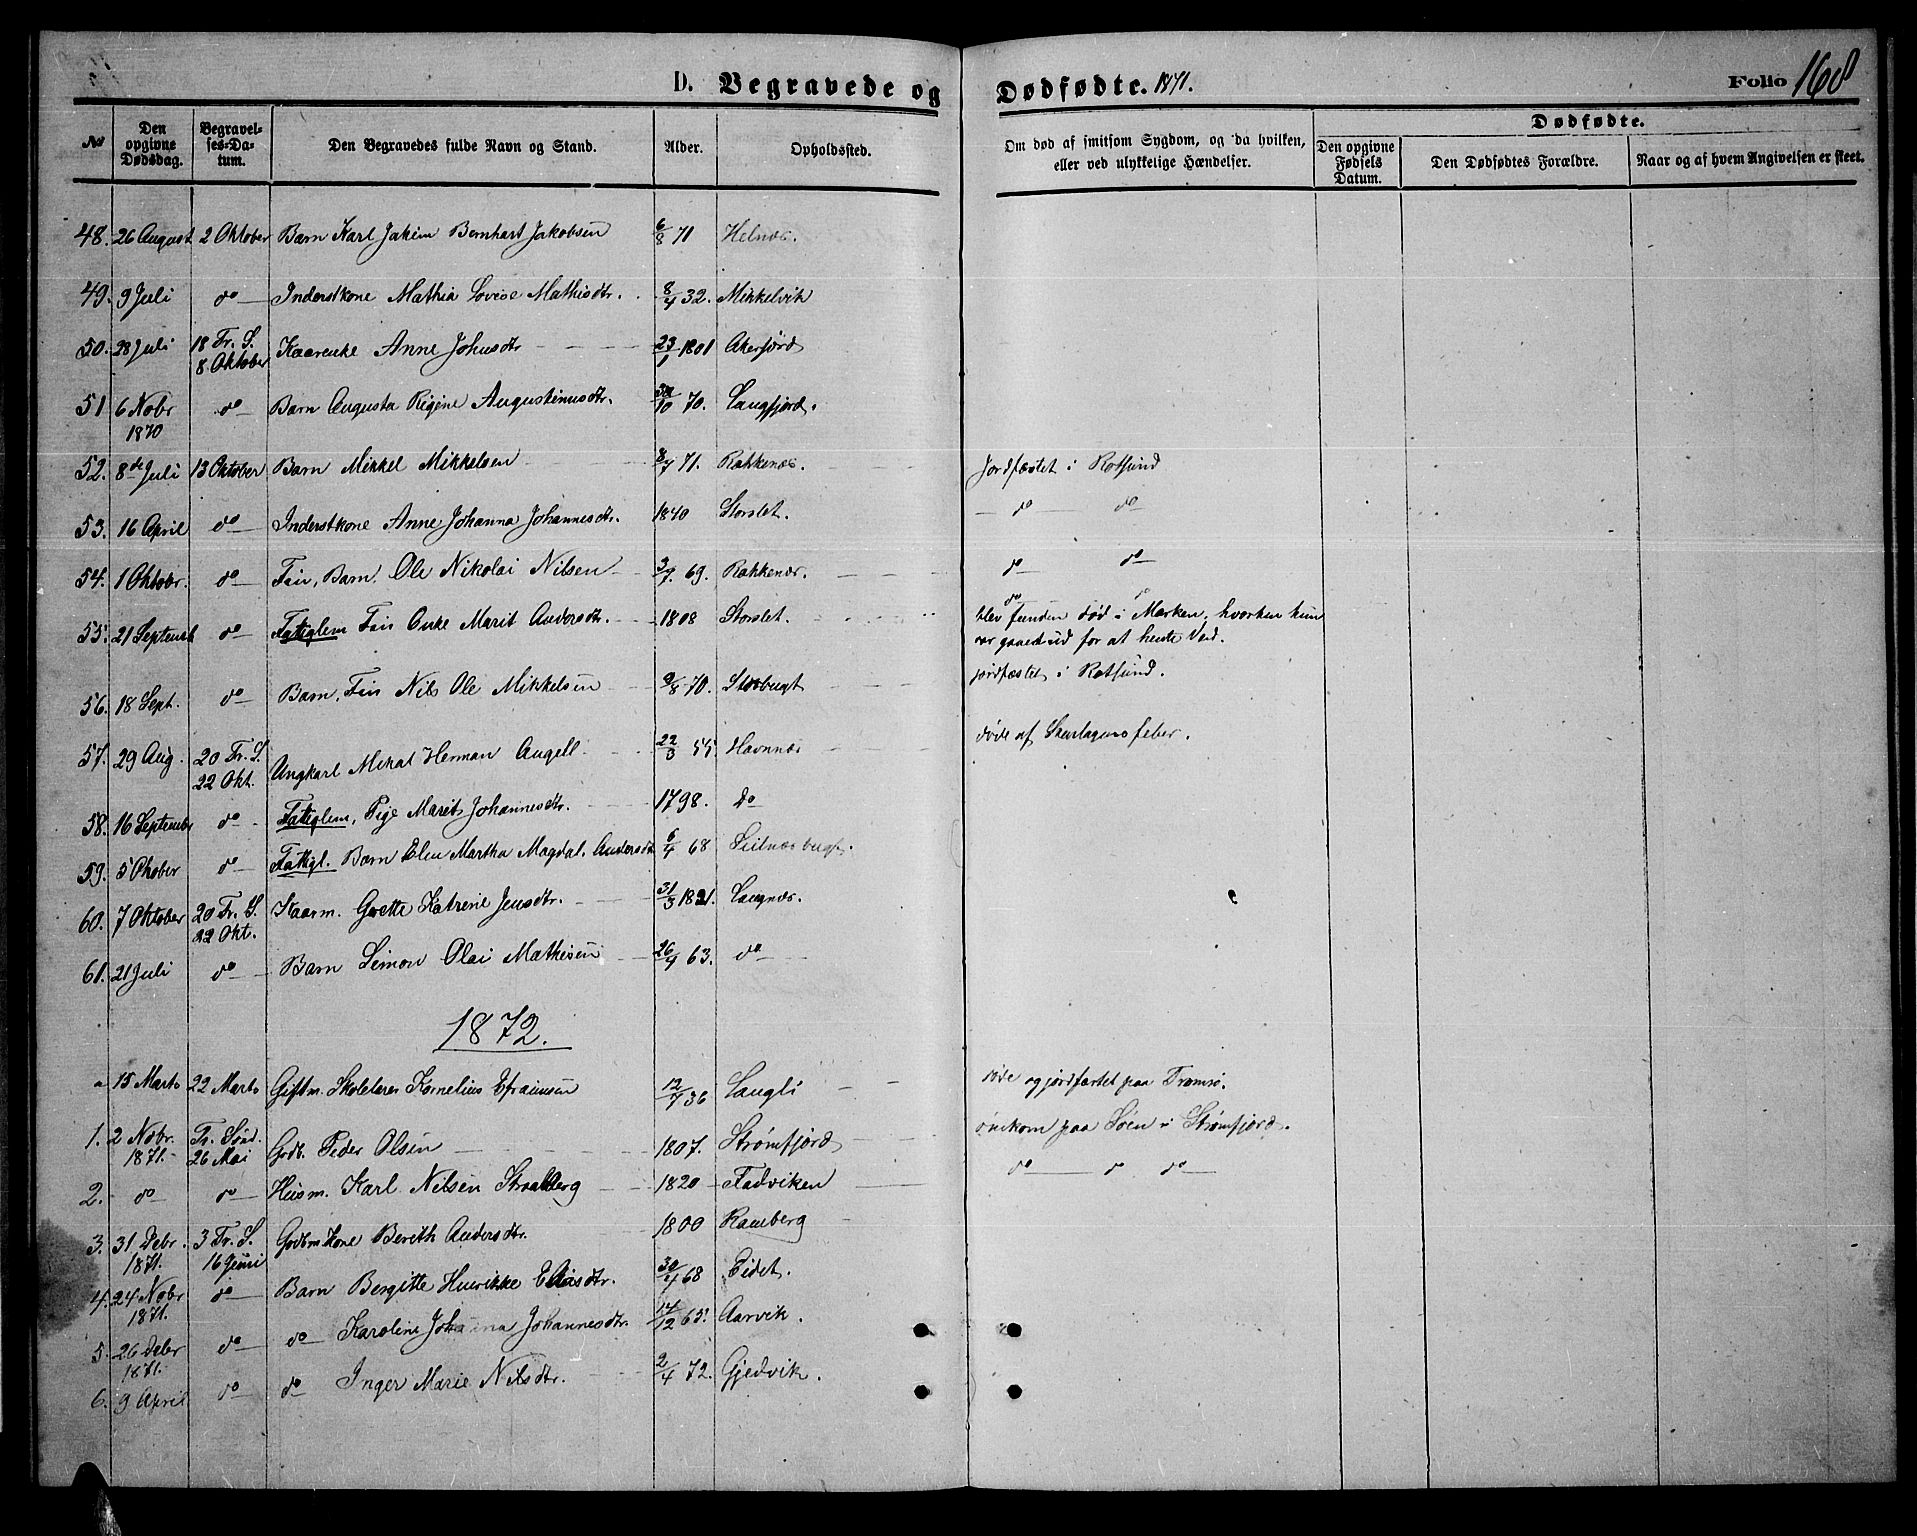 D. Begravede og Dødfødte. 1871. Folio 168
No
Den opgivne Dødsdag.
Begravelses-Datum.
Den Begravedes fulde Navn og Stand.
Alder.
Opholdssted.
Om død af smitsom Sygdom, og da hvilken, eller ved ulykkelige Hændelser.
Dødfødte.
Den opgivne Fødsels Datum.
Den Dødfødtes Forældre.
Naar og af hvem Angivelsen er skeet.
48. 26 August 2 Oktober Barn Karl Jakim Bernhart Jakobsen 6/8 71 Helnæs.
49. 9 Juli do Inderstkone Mathia Lovise Mathisdtr. 8/4 32. Mikkelvik
50. 28 Juli 18 Tr. S. 8 Oktober Kaarenke Anne Johnsdtr 23/1 1801 Akerfjord
51 6 Nobr 1870 do Barn Augusta Regine Augustinusdtr. 30/10 70. Langfjord.
52. 8de Juli 13 Oktober Barn Mikkel Mikkelsen 8/7 71. Rakkenæs. Jordfæstet i Rotsund
53. 16 April do Inderstkone Anne Johanna Johannesdtr. 1840 Storslet. do do
54. 1 Oktobr. do Fin, Barn. Ole Nikolai Nilsen 3/9 69. Rakkenæs. do do
55. 21 Septemb do Fattiglem Fin Enke Marit Andersdtr. 1808 Storslet. do do
blev funden død i Marken, hvorhen hun
var gaaet ud for at hente Ved.
56. 18 Sept. do Barn, Fin Nils Ole Mikkelsen 9/8 70. Storbugt jordfæstet i Rotsund.
57. 29 Aug. 20 Tr. S. 22 Okt. Ungkarl Mikal Herman Angell 22/3 55. Havnnæs døde af Skarlagensfeber.
58. 16 Septembr do Fattiglem, Pige Marit Johannesdtr. 1798. Do
59. 5 Oktober do Fattigl. Barn Elen Martha Magdal. Andersdt 6/4 68
60. 7 Oktober 20 Tr. S. 22 Okt. Kaarm. Grette Katrine Jensdtr. 31/3 1821. Langnæs.
61. 21 Juli do Barn Simon Olai Mathisen 26/4 63. do
1872.
a 15 Marts 22 Marts Giftm. Skolelærer Kornelius Efraimsen 12/7 36 Langli døde og jordfæstet paa Tromsø.
1. 2 Nobr. 1871. Tr. Sønd. 26 Mai Gdb. Peder Olsen 1807. Strømfjord omkom paa Søen i Strømfjord.
2. do do Husm. Karl Nilsen Straalberg 1820 Fadviken do do do
3. 31 Debr. 1871. 3 Tr. S. 16 Juni Gdbm Kone Berith Andersdtr. 1800 Ramberg
4. 24 Nobr 1871. do Barn Bergitte Henrikke Eliasdtr. 30/4 68 Eidet.
5. 26 Debr 1871. do do Karoline Johanna Johannesdtr. 14/12 65. Aarvik.
6. 9 April do do Inger Marie Nilsdtr. 2/4 72. Gjedvik.